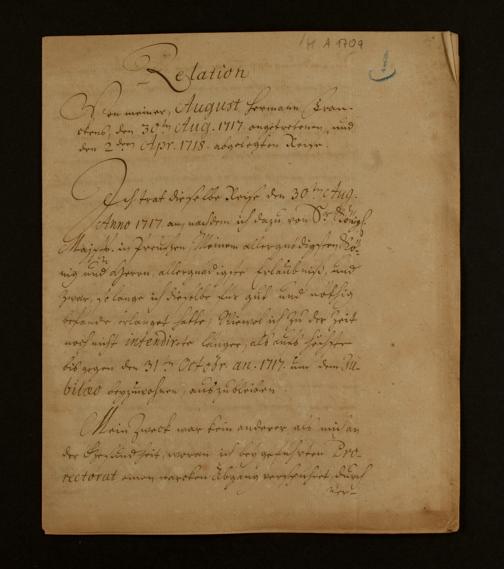 H A 170a
1
Relation
Von meiner, August Hermann Fran-
ckens, den 30ten Aug. 1717 angetretenen, und
den 2ten Apr. 1718. abgelegten Reise.
Ich trat dieselbe Reise den 30ten Aug.
Anno 1717. an, nachdem ich dazu von Sr. Königl.
Majest. in Preussen, Meinem allergnädigsten Kö-
nig und Herrn, allergnädigste Erlaubniß, und
zwar, so lange ich dieselbe für gut und nöthig
befände, erlanget hatte; Wiewol ich zu der Zeit
noch nicht intendirte länger, als aufs höchste
bis gegen den 31ten Octobr. an. 1717. um dem Ju-
bilaeo beyzuwohnen, auszubleiben.
Mein Zweck war kein anderer als mich an
der Gesundheit, woran ich bey geführten Pro-
rectorat einen starcken Abgang verspühret, durch